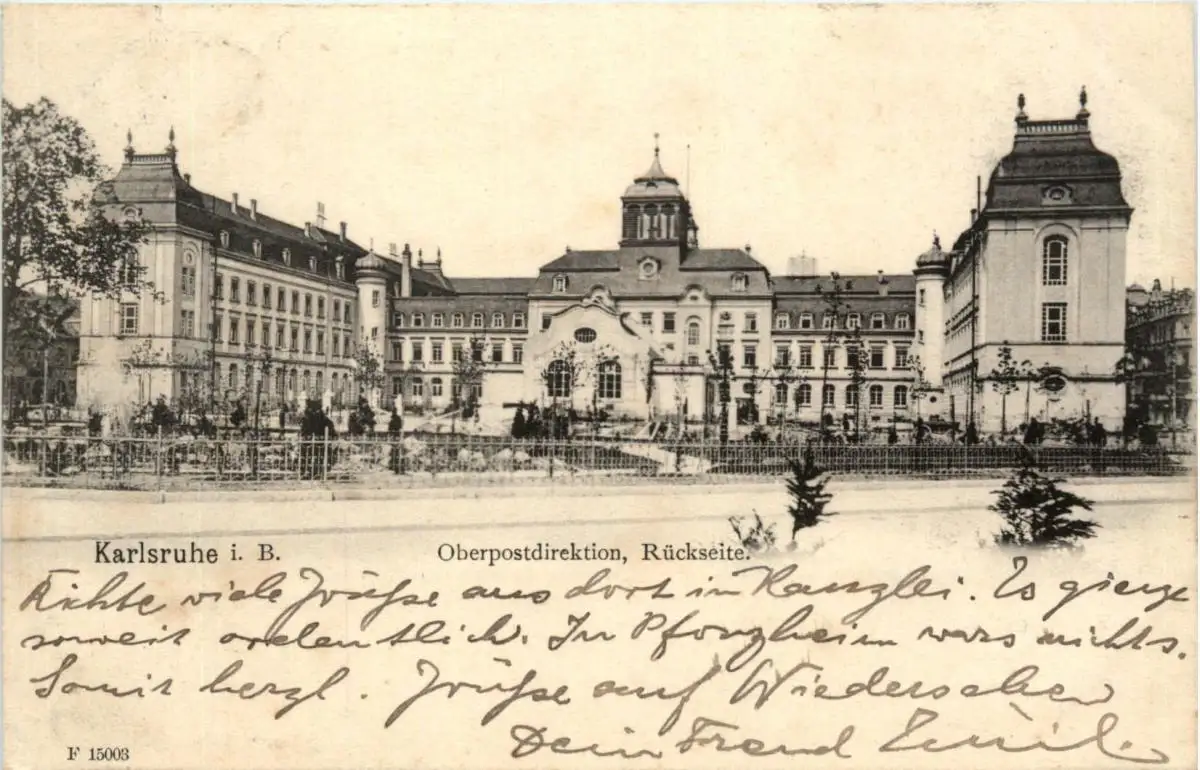 Karlsruhe i. B.
Oberpostdirektion, Rückseite.
Richte viele Grüße aus dort in Kanzlei. Es gienge
soweit ordentlich. In Pforzheim wars nichts.
Somit herzl. Grüße auf Wiedersehen
Dein Freund Emil.
F 15003